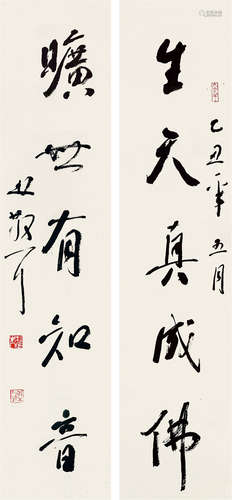 生天真成佛
乙丑年五月
曠世有知音